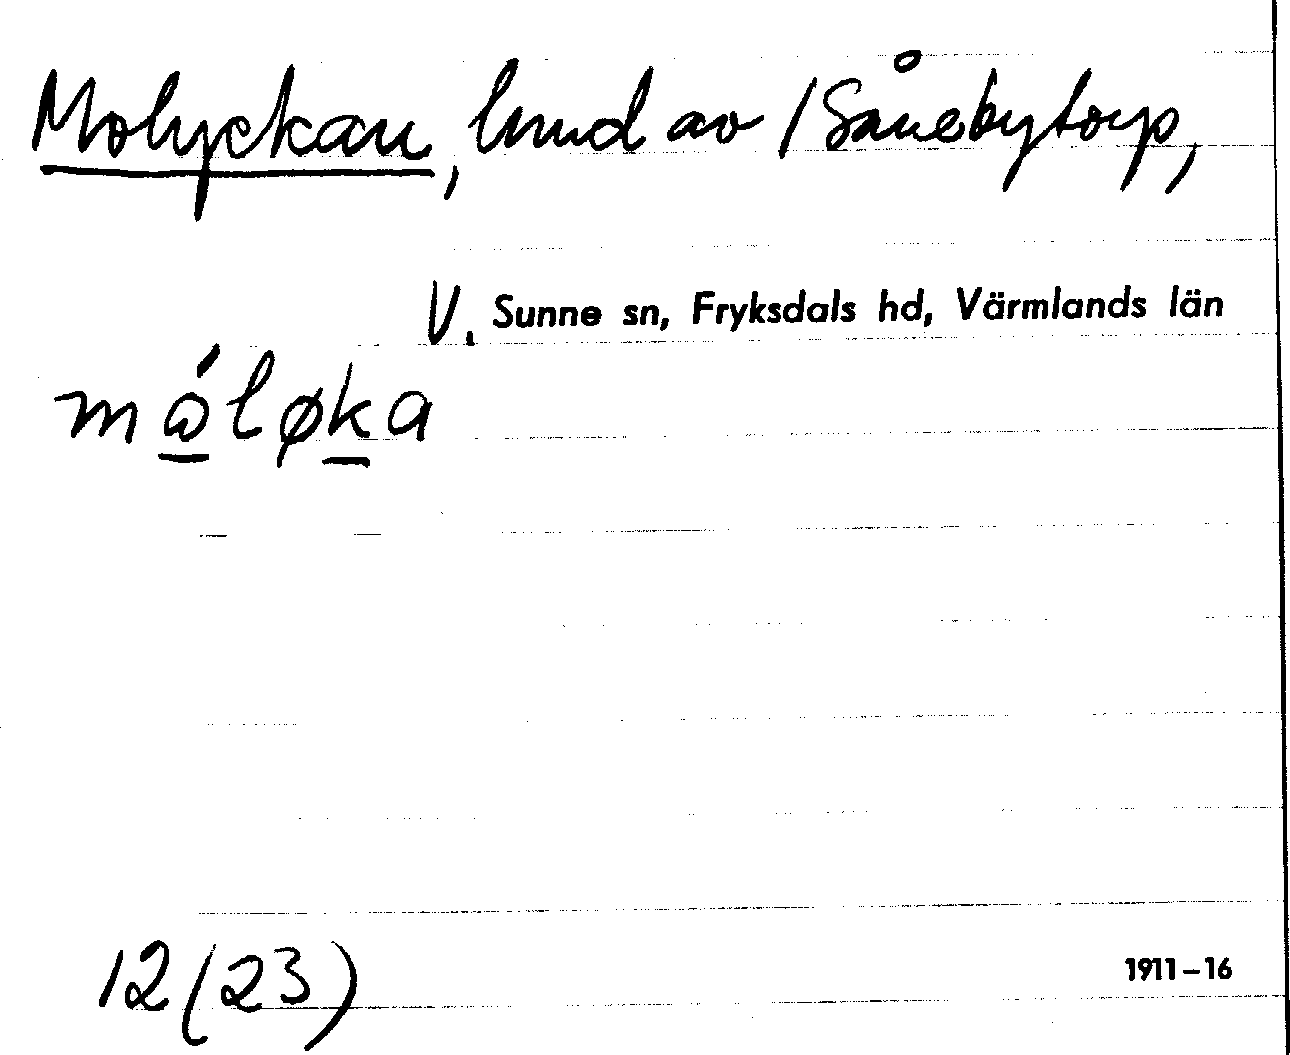 Molyckan, lund av /Sånebytorp,
V. Sunne sn, Fryksdals hd, Värmlands län
mώ̲løk̲a
12(23)
1911–16